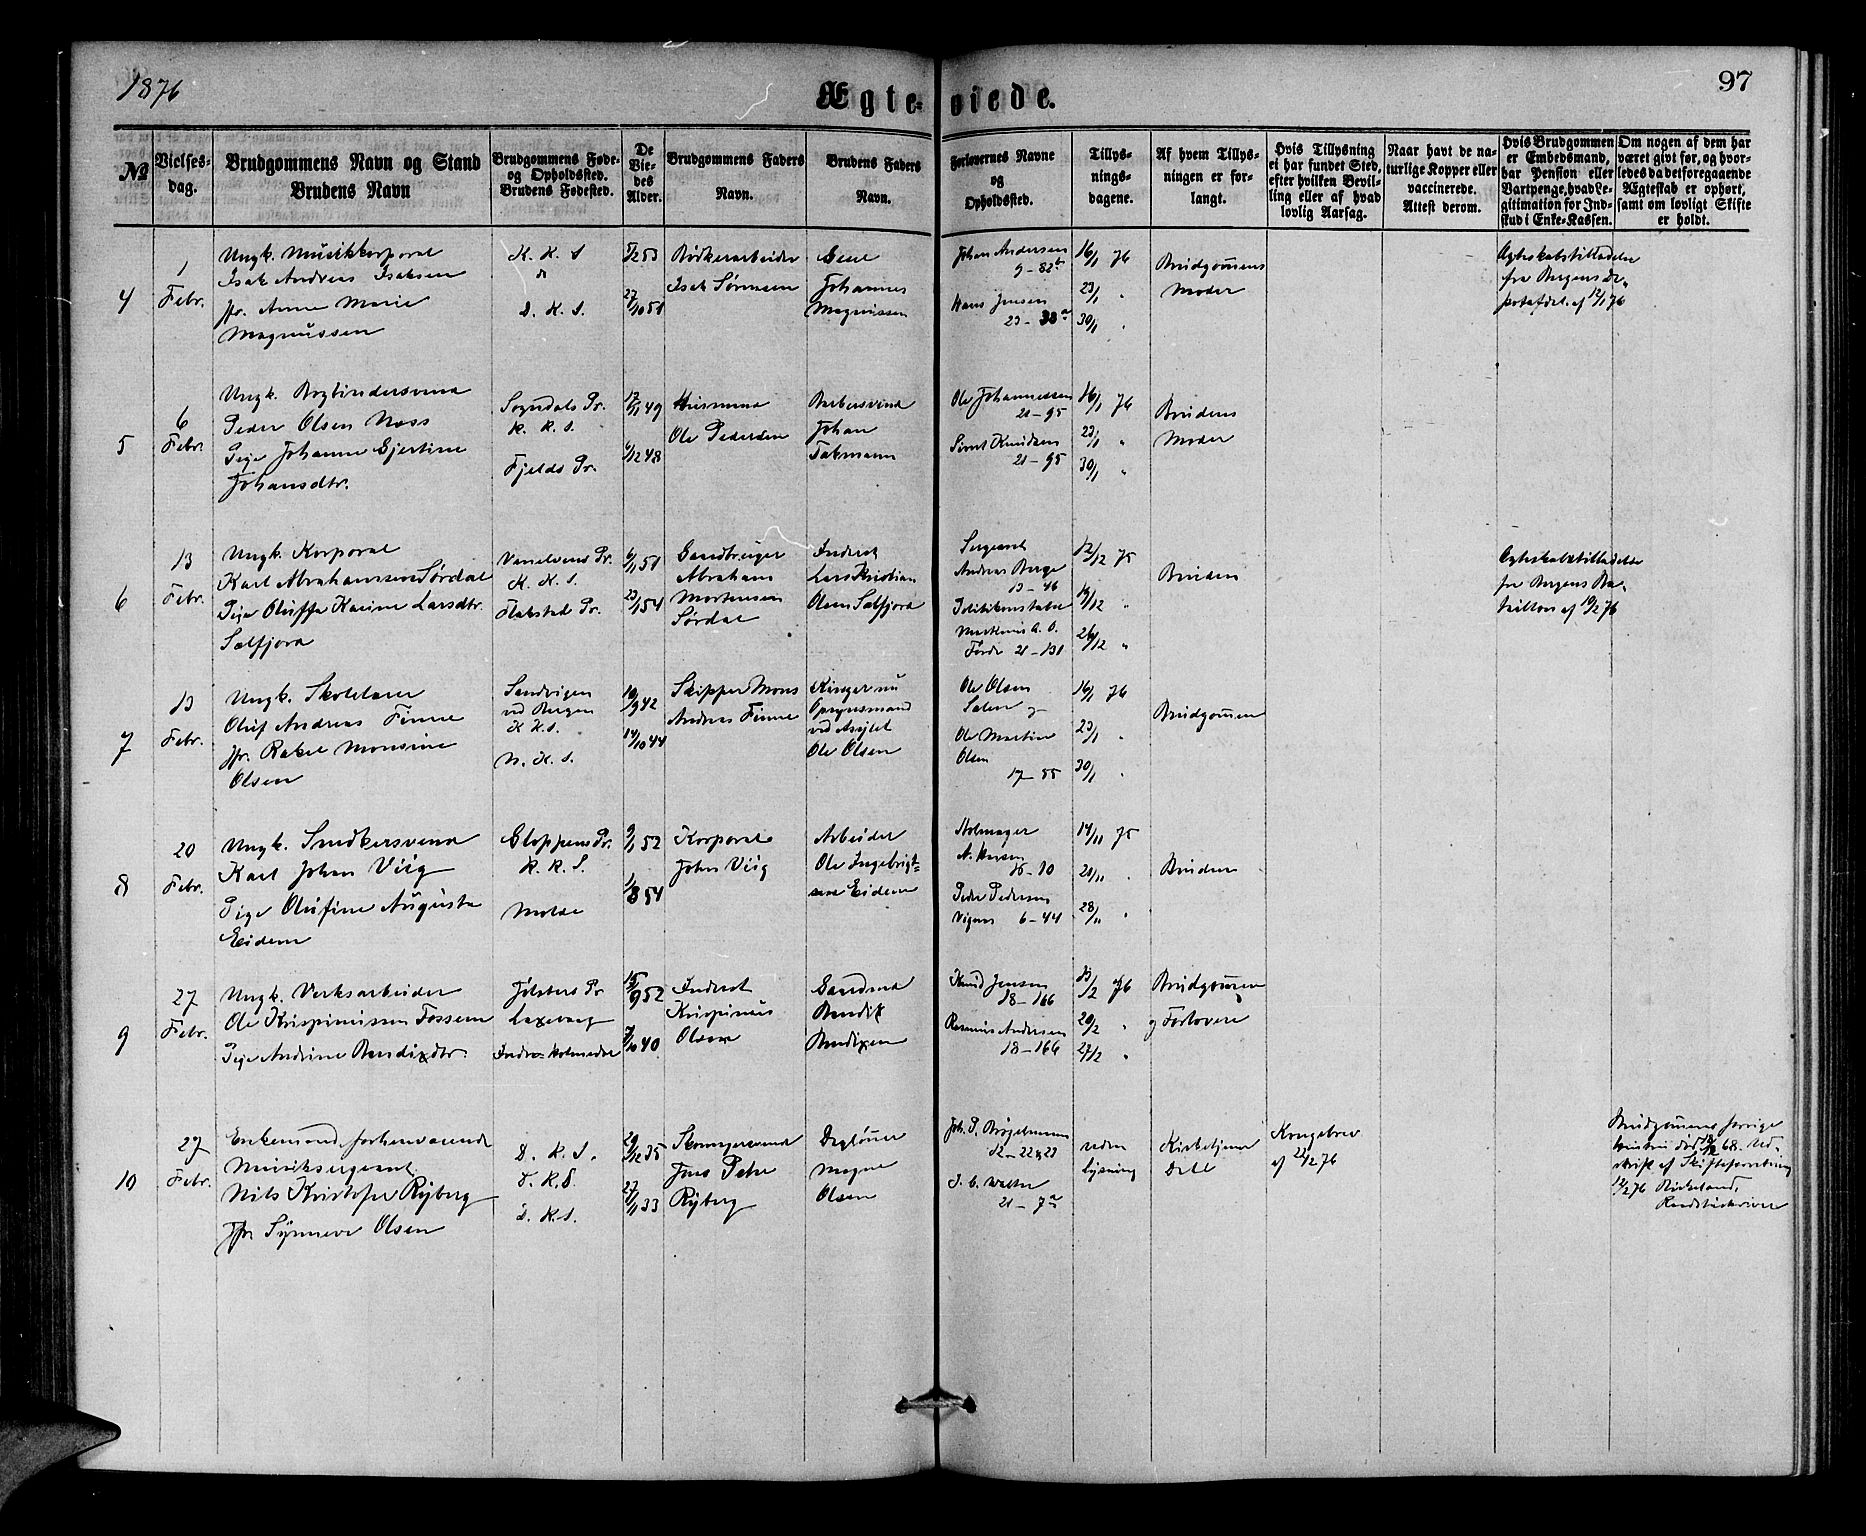 1876
Ægteviede.
97
№
Vielses-
dag.
Brudgommens Navn og Stand
Brudens Navn
Brudgommens Føde-
og Opholdssted.
Brudens Fødested.
De
Vie-
des
Alder.
Brudgommens Faders
Navn.
Brudens Faders
Navn.
Forlovernes Navne
og
Opholdssted.
Tillys-
nings-
dagene.
Af hvem Tillys-
ningen er for-
langt.
Hvis Tillysning
ei har fundet Sted,
efter hvilken Bevil-
ling eller af hvad
lovlig Aarsag.
Naar havt de na-
turlige Kopper eller
vaccinerede.
Attest derom.
Hvis Brudgommen
er Embedsmand,
har Pension eller
Vartpenge, hvad Le-
gitimation for Ind-
skud i Enke-Kassen.
Om nogen af dem har
været givt før, og hvor-
ledes da det foregaaende
Ægteskab er ophørt,
samt om lovligt Skifte
er holdt.
4
1
Febr.
Ungk. Musikkorporal
Isak Andreas Isaksen
Jfr. Anne Marie
Magnussen
K. K. S
D. K. S.
27/10 51
Bødkerarbeider
Isak Sørensen
Johannes
Magnussen
Johan Andersen
9 - 82
Hans Jensen
23 - 38a
16/1 76
23/1 "
30/1 "
Brudgommens
Moder
Ægteskabstilladelse
fra Bergens De-
potafdel. af 12/1 76
5
6
Febr.
Ungk. Bogbindersvend
Peder Olsen Næss
Pige Johanne Gjertine
Johansdtr.
Sogndals Pr.
K. K. S.
Fjelds Pr.
17/1 49
6/12 48
Husmand
Ole Pedersen
Barbersvend
Johan
Ole Johannessen
21 - 95
Sivert Knudsen
21 - 95
16/1 76
23/1 "
30/1 "
Brudens
Moder
6
13
Febr.
Ungk. Korporal
Karl Abrahamsen Sørdal
Pige Oluffa Karine Larsdtr.
Selfjord
K. K. S.
Flakstad Pr.
6/1 51
23/1 54
Gaardbruger
Abraham
Mortensen
Sørdal
Inderst
Lars Kristian
Olsen Selfjord
Sergeant
Andreas Berge
13 - 46
Politikonstabel
Førde 21 - 131
12/12 75
19/12 "
26/12 "
Bruden
Ægteskabstilladelse
fra Bergens Ba-
taillon af 10/2 76
7
13
Febr.
Ungk. Skolelærer
Oluf Andreas Finne
Jfr. Rakel Monsine
Olsen
Sandvigen
ved Bergen
K. K. S.
N. K. S.
10/9 42
14/10 44
Skipper Mons
Andreas Finne
Ringer nu
Opsynsmand
ved Asylet
Ole Olsen
Ole Olsen
Ole Martin
Olsen
17 - 55
16/1 76
23/1 "
30/1 "
Brudgommen
8
20
Febr.
Ungk. Snedkersvend
Karl Johan Viig
Pige Olufine Augusta
Eidem
Gloppens Pr.
K. K. S.
Molde
9/1 52
1/8 54
Korporal
John Viig
Arbeider
Ole Ingebrigt-
sen Eidem
15 - 10
Peder Pedersen
Vignes 6 - 44
14/11 75
21/11 "
28/11 "
Bruden
9
27
Febr.
Ungk. Verksarbeider
Ole Krispinussen Fossem
Pige Andrine Bendixdtr.
Jølsters Pr
Laxevaag
Indre Holmedal
15/9 52
7/10 40
Inderst
Krispinus
Olsen
Gaardmd
Bendix
Bendixen
Knud Jensen
18 - 166
Rasmus Andersen
18 - 166
13/2 76
20/2 "
27/2 "
Brudgommen
og Forlovere
10
27
Febr.
Enkemand, forhenværende
Musiksergeant
Nils Kristofer Ryberg
Jfr Synneve Olsen
D. K. S.
D. K. S.
D. K. S.
29/12 35
27/1 33
Skomagersvend
Jens Peter
Ryberg
Dagløner
Magne
Olsen
12 - 22 & 23
J. C. Walter
21 - 7a
uden
lysning
Kirketjener
Dahl
Kongebrev
af 22/2 76
Brudgommens forrige
hustru død 18/12 68. Ud-
skrift af Skifteforretning
12/2 76 Birkeland,
Raadstueskriver